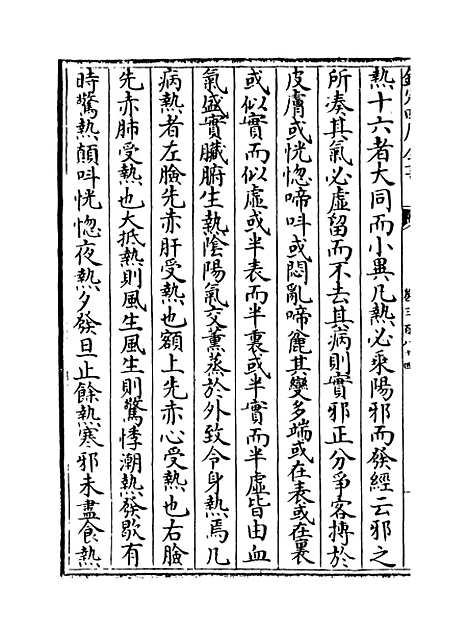 熱十六者大同而小異凡熱必乘陽邪而發經云邪之
所湊其氣必虛留而不去其病則實邪正分爭客搏於
皮膚或恍惚啼呌或悶亂啼麄其變多端或在表或在裏
或似實而似虛或半表而半裏或半實而半虛皆由血
氣盛實臟腑生熱陰陽氣交薰蒸於外致令身熱焉凡
病熱者左臉先赤肝受熱也額上先赤心受熱也右臉
先赤肺受熱也大抵熱則風生風生則驚悸潮熱發歇有
時驚熱顛呌恍惚夜熱夕發旦止餘熱寒邪未盡食熱